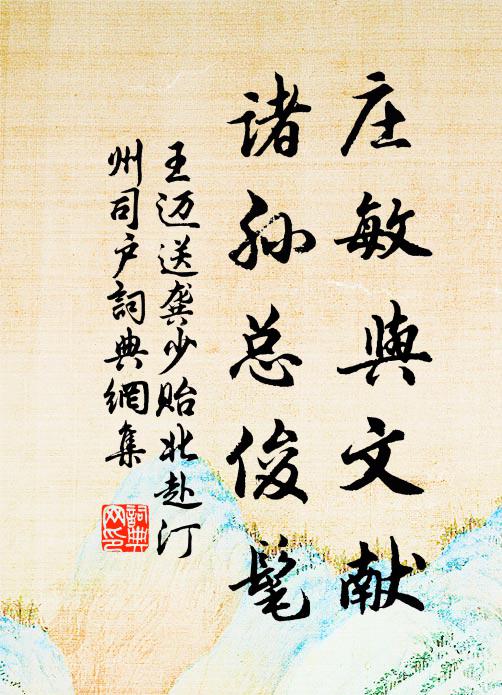 庄敏與文献
诸孙总俊髦
王迈送龚少贻北赴汀
州司户詞典網集
詞典
网印